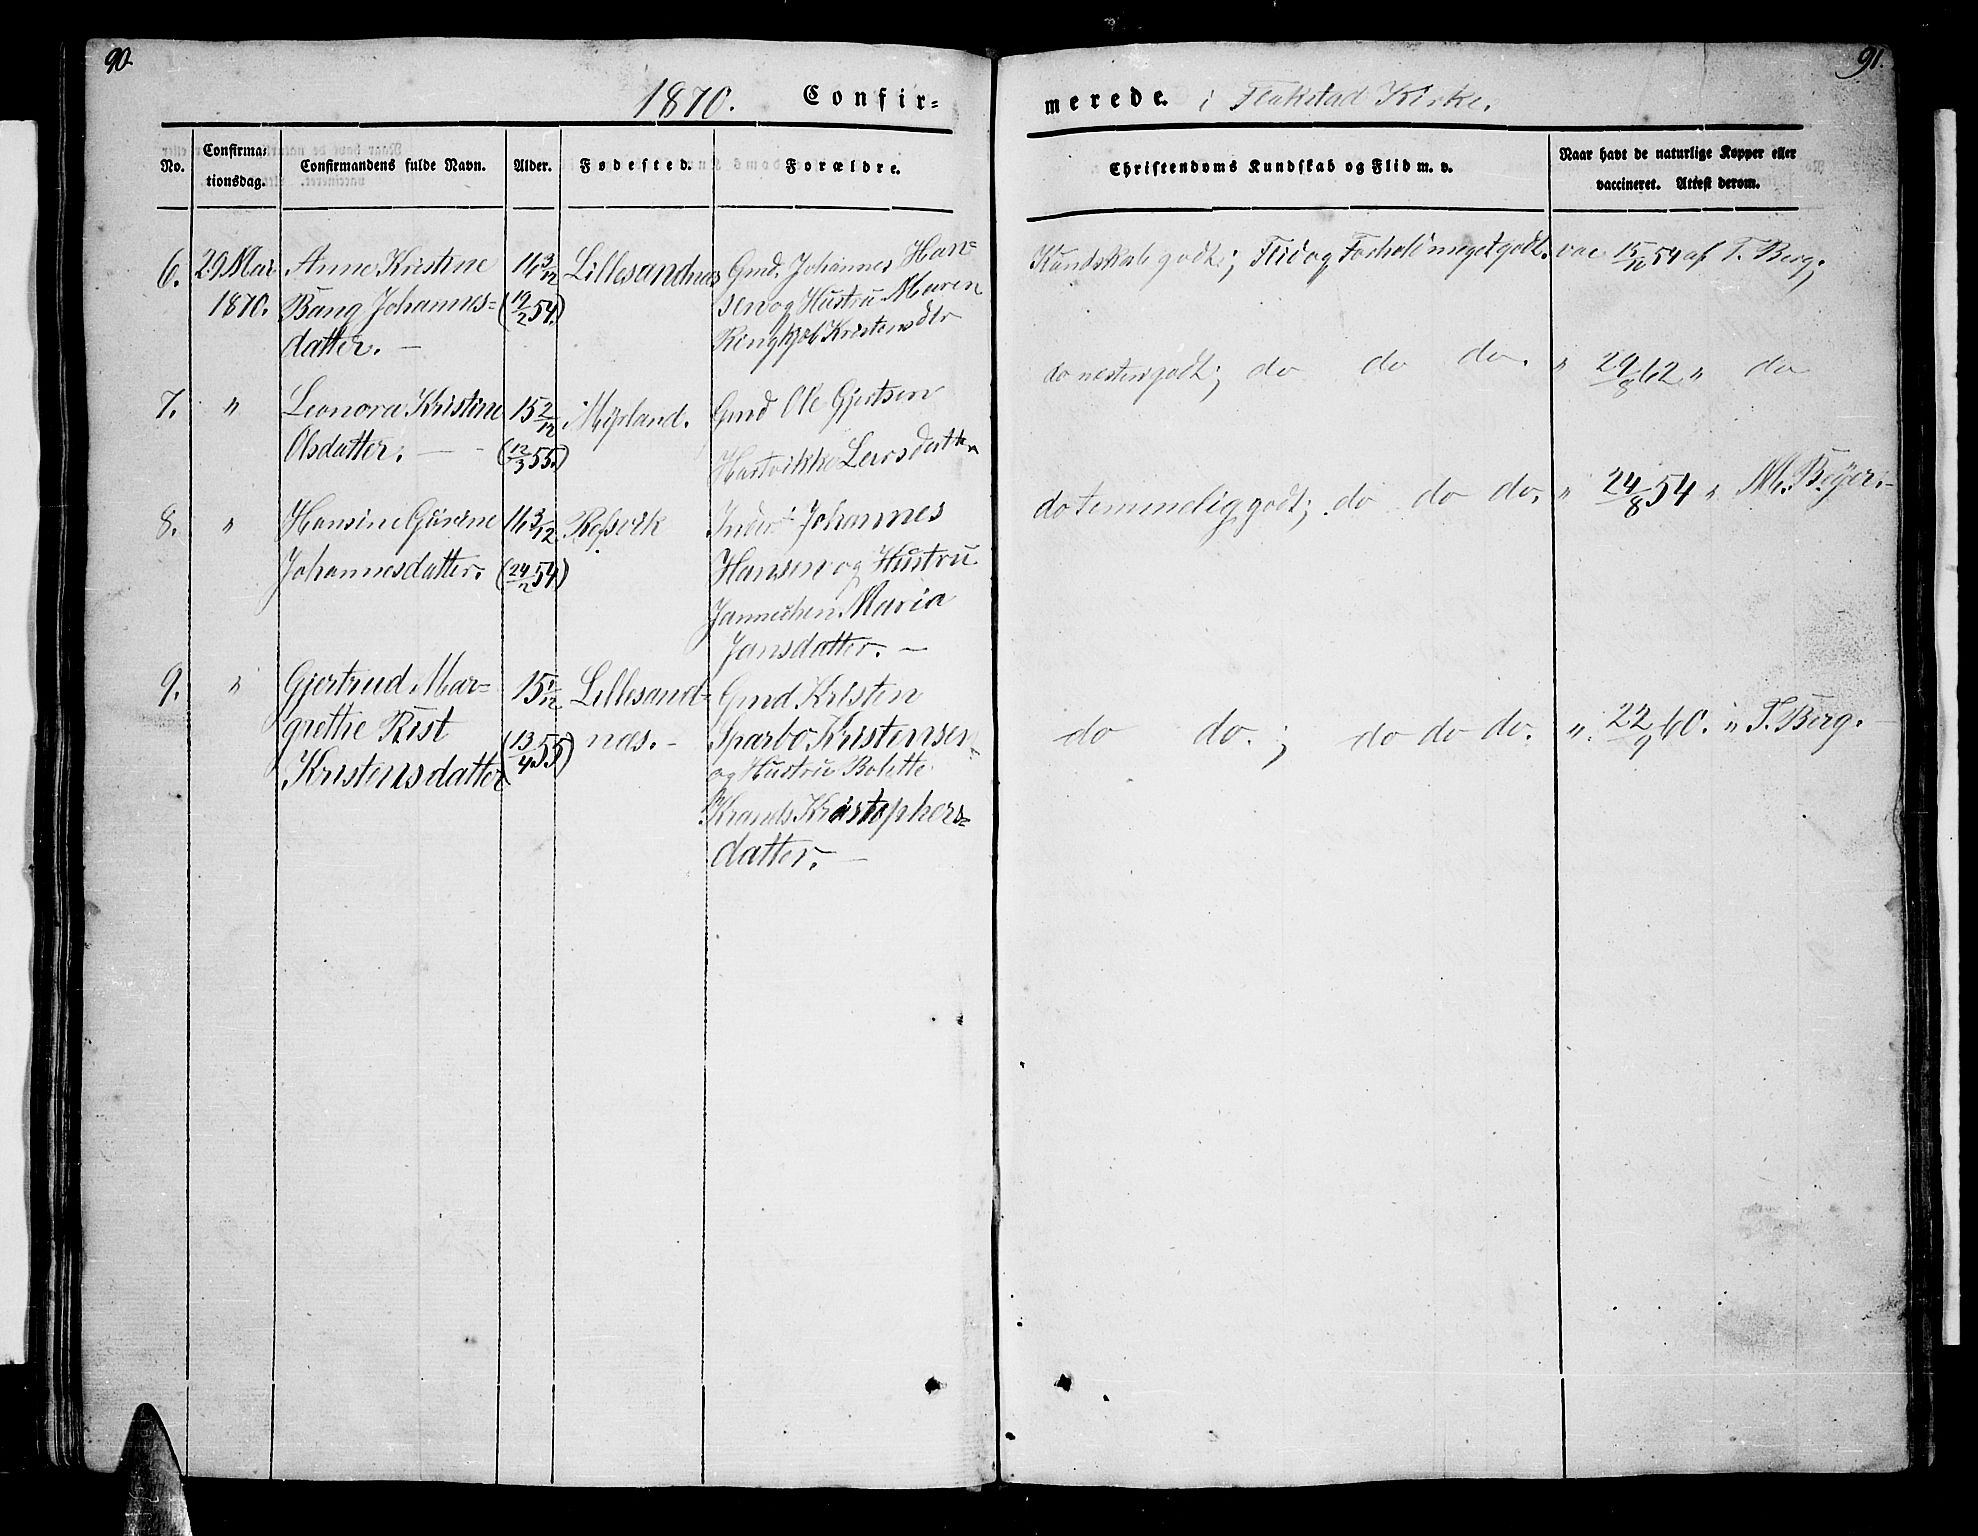 90.
91.
1870. Confir-
merede. i Flakstad Kirke.
No.
Confirma-
tionsdag.
Confirmandens fulde Navn.
Alder.
Fødested.
Forældre.
Christendoms Kundskab og Flid m. v.
Naar havt de naturlige Kopper eller
vaccineret. Attest derom.
6. 29 Mai Anne Kristine 15 3/12 Lillesandnæs Gmd. Johannes Han=
1870. Bang Johannes= (19/2 54.) sen og Hustru Maren
datter. — Ringkjøb Kristensdtr
Kundskab godt; Flid og Forhold meget godt. vac 15/11 54 af T. Berg.
7. " Leonora Kristine 15 2/12 Myrland. Gmd Ole Gjertsen
Olsdatter. — (12/3 55.) Hartvikke Larsdatter
do næsten godt; do do do. " 29/8 62 " do
8. " Hansine Gurine 16 3/12 Resvik Inder. Johannes
Johannesdatter. (24/2 54) Hansen og Hustru
Jannichen Maria
Jansdatter. —
do temmelig godt; do do do. " 24/8 54 " M. Beyer. -
9. " Gjertrud Mar= 15 1/12 Lillesand= Gmd Kristen
grethe Rist (13/4 55) næs. - Sparbo Kristensen
Kristensdatter og Hustru Bolette
Krands Kristophers=
datter. —
do do. ; do do do. " 22/9 60. " T. Berg. —